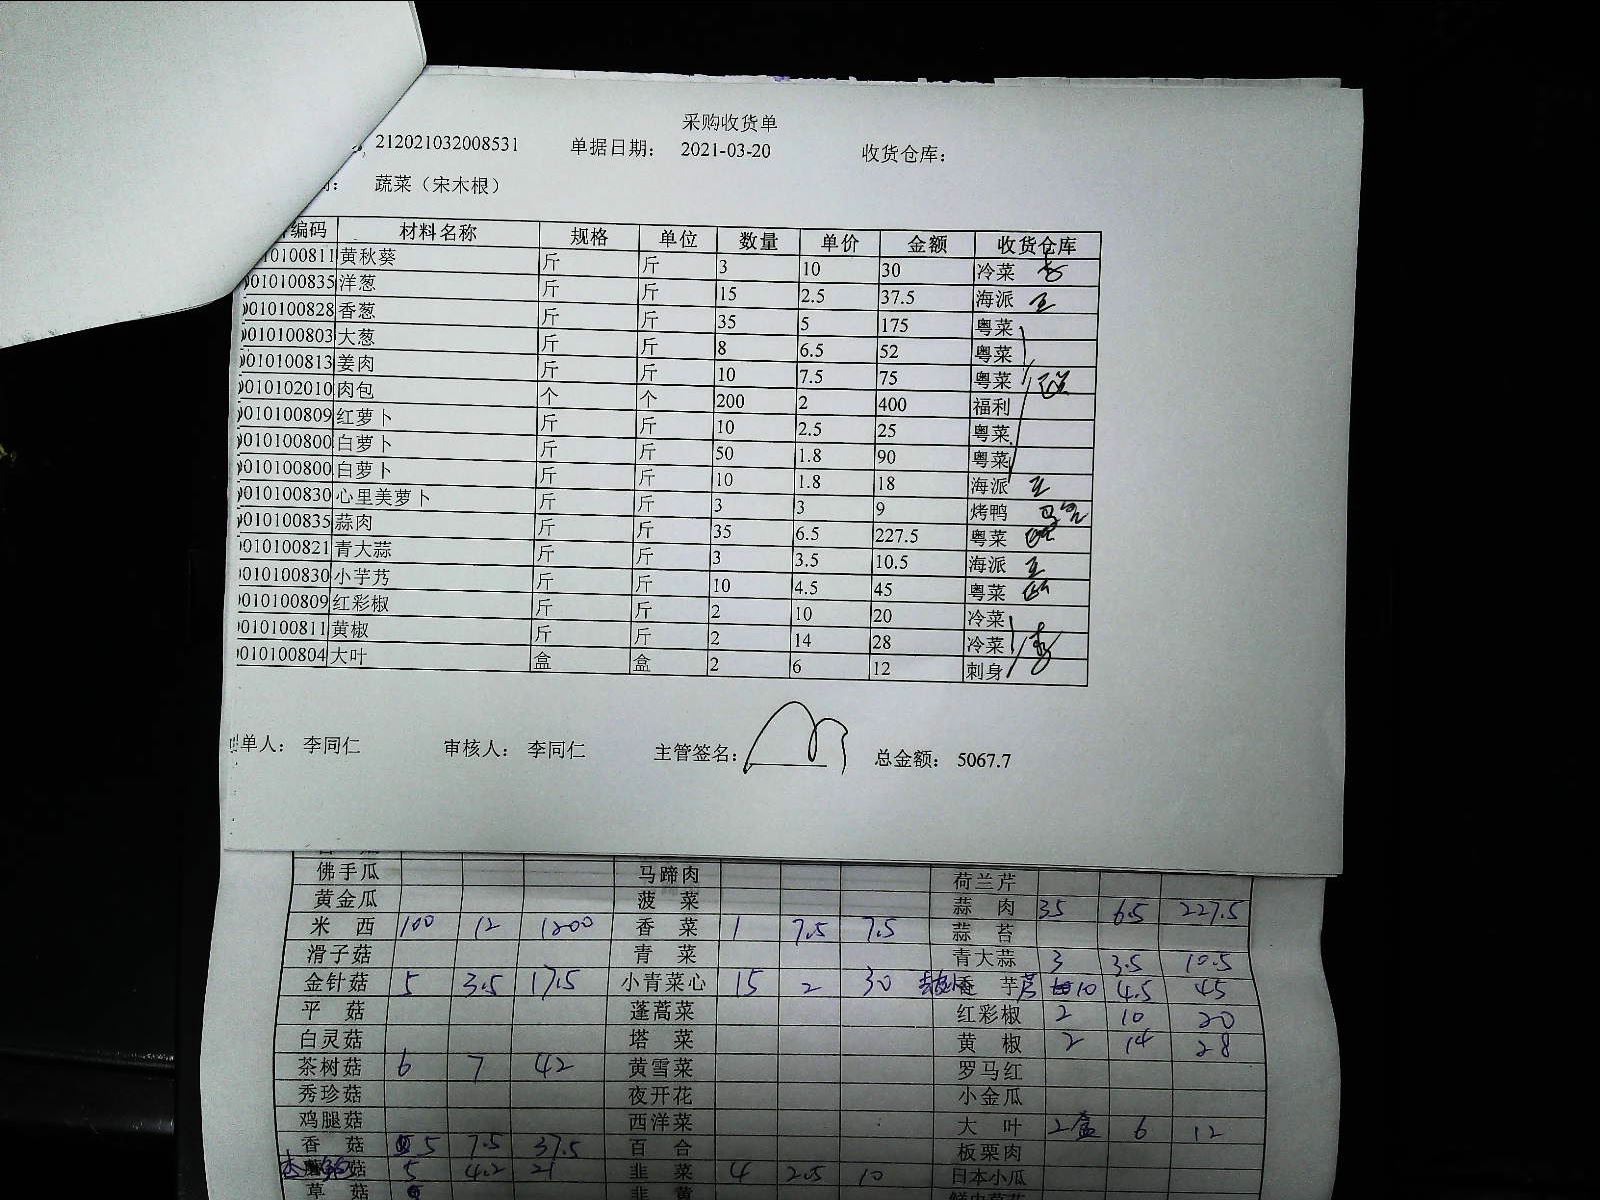 采购收货单
212021032008531 单据日期： 2021-03-20 收货仓库：
蔬菜（宋木根）
编码 材料名称 规格 单位 数量 单价 金额 收货仓库
10100811 黄秋葵 斤 斤 3 10 30 冷菜
010100835 洋葱 斤 斤 15 2.5 37.5 海派 王
010100828 香葱 斤 斤 35 5 175 粤菜
010100803 大葱 斤 斤 8 6.5 52 粤菜
010100813 姜肉 斤 斤 10 7.5 75 粤菜
010102010 肉包 个 个 200 2 400 福利
010100809 红萝卜 斤 斤 10 2.5 25 粤菜
010100800 白萝卜 斤 斤 50 1.8 90 粤菜
010100800 白萝卜 斤 斤 10 1.8 18 海派 王
010100830 心里美萝卜 斤 斤 3 3 9 烤鸭
010100835 蒜肉 斤 斤 35 6.5 227.5 粤菜
010100821 青大蒜 斤 斤 3 3.5 10.5 海派 王
010100830 小芋艿 斤 斤 10 4.5 45 粤菜
010100809 红彩椒 斤 斤 2 10 20 冷菜
010100811 黄椒 斤 斤 2 14 28 冷菜
010100804 大叶 盒 盒 2 6 12 刺身
单人： 李同仁 审核人： 李同仁 主管签名： 总金额： 5067.7
佛手瓜 马蹄肉 荷兰芹
黄金瓜 菠 菜 蒜 肉 35 6.5 227.5
米 西 100 12 1200 香 菜 1 7.5 7.5 蒜 苔
滑子菇 青 菜 青大蒜 3 3.5 10.5
金针菇 5 3.5 17.5 小青菜心 15 2 30 芋 10 4.5 45
平 菇 蓬蒿菜 红彩椒 2 10 20
白灵菇 塔 菜 黄 椒 2 14 28
茶树菇 6 7 42 黄雪菜 罗马红
秀珍菇 夜开花 小金瓜
鸡腿菇 西洋菜 大 叶 2盒 6 12
香 菇 5 7.5 37.5 百 合 板栗肉
菇 5 4.2 21 韭 菜 4 2.5 10 日本小瓜
草 菇 韭 黄